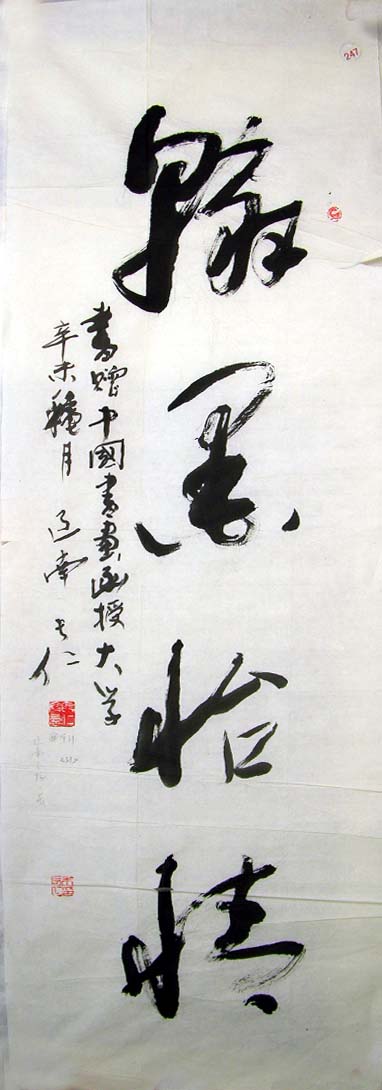 247
翰墨怡情
書贈中國書畫函授大学
辛未秋月 辽南 长仁